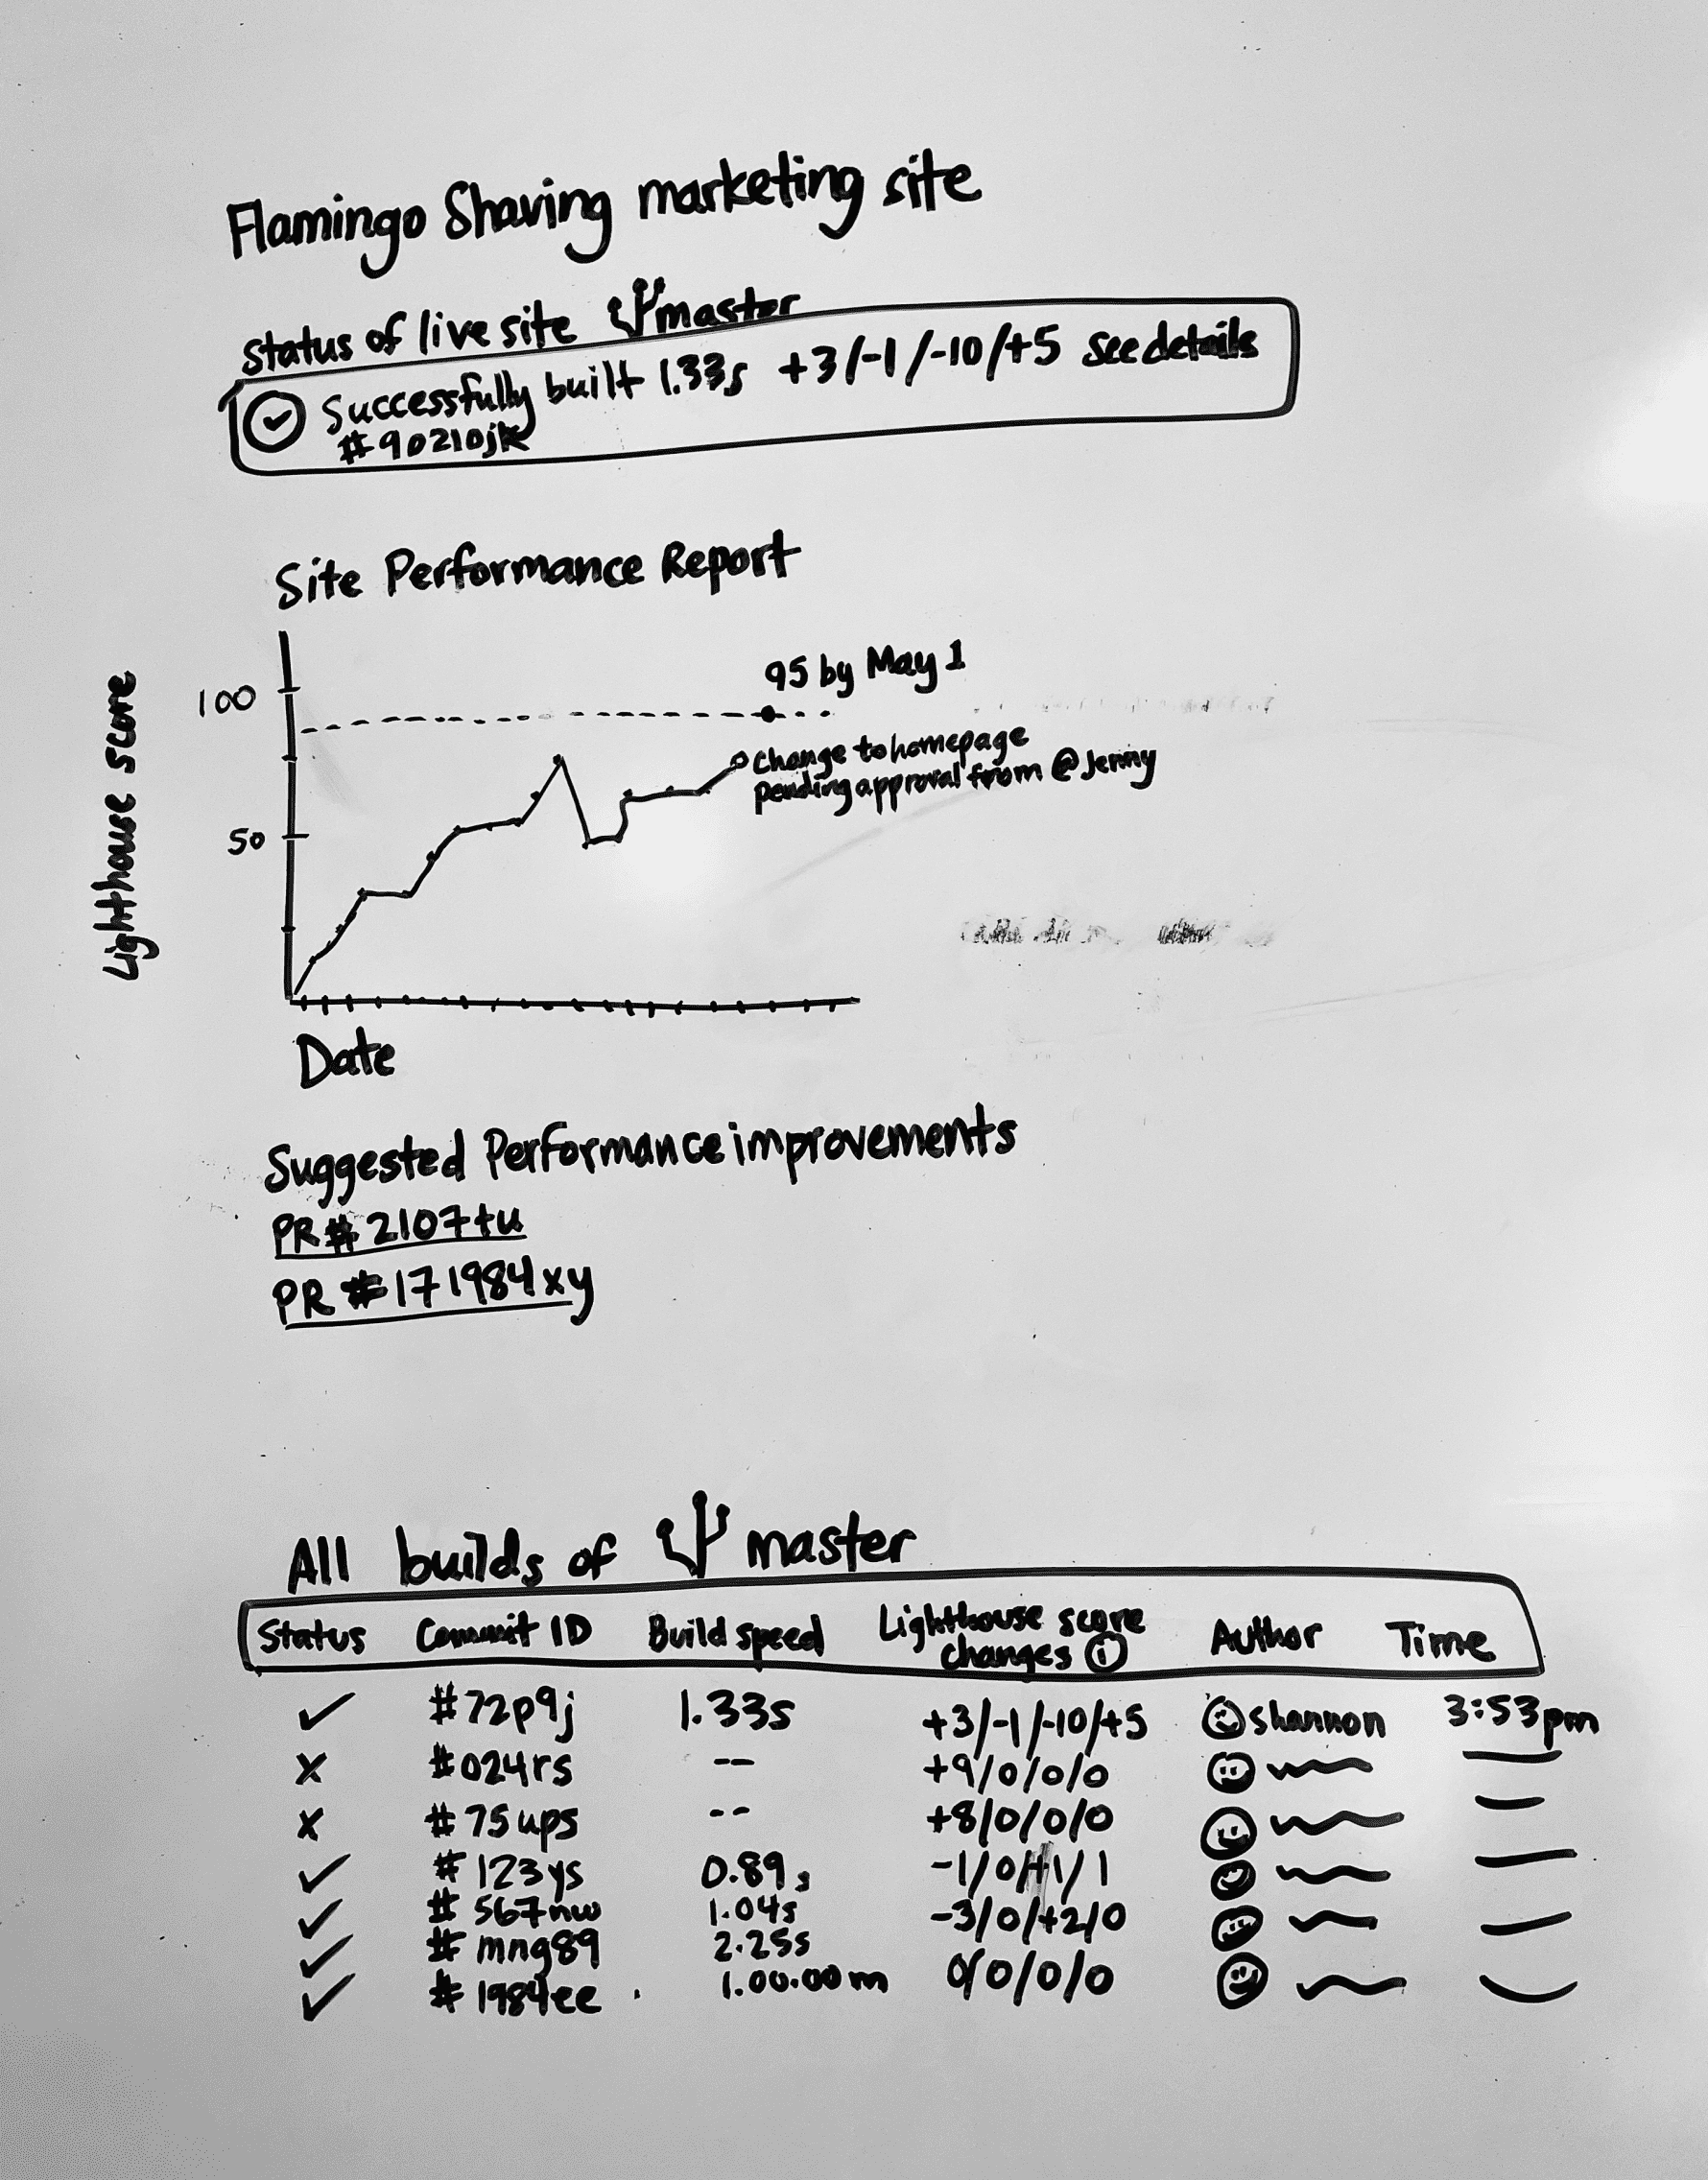 Flamingo Shaving marketing site
Status of live site master
Successfully built 1.33s +3/-1/-10/+5 see details
#90210jk
Site Performance Report
95 by May 1
100
Change to homepage
pending approval from @Jenny
50
Lighthouse score
Date
Suggested Performance improvements
PR# 2107tu
PR #171984xy
All builds of master
Status Commit ID Build speed Lighthouse score changes i Author Time
#72p9j 1.33s +3/-1/-10/+5 shannon 3:53pm
#024rs -- +9/0/0/0
#75ups -- +8/0/0/0
#123ys 0.89s -1/0/+1/1
#567nw 1.04s -3/0/+2/0
#mng89 2.25s
#1984ee 1.00.00m 0/0/0/0